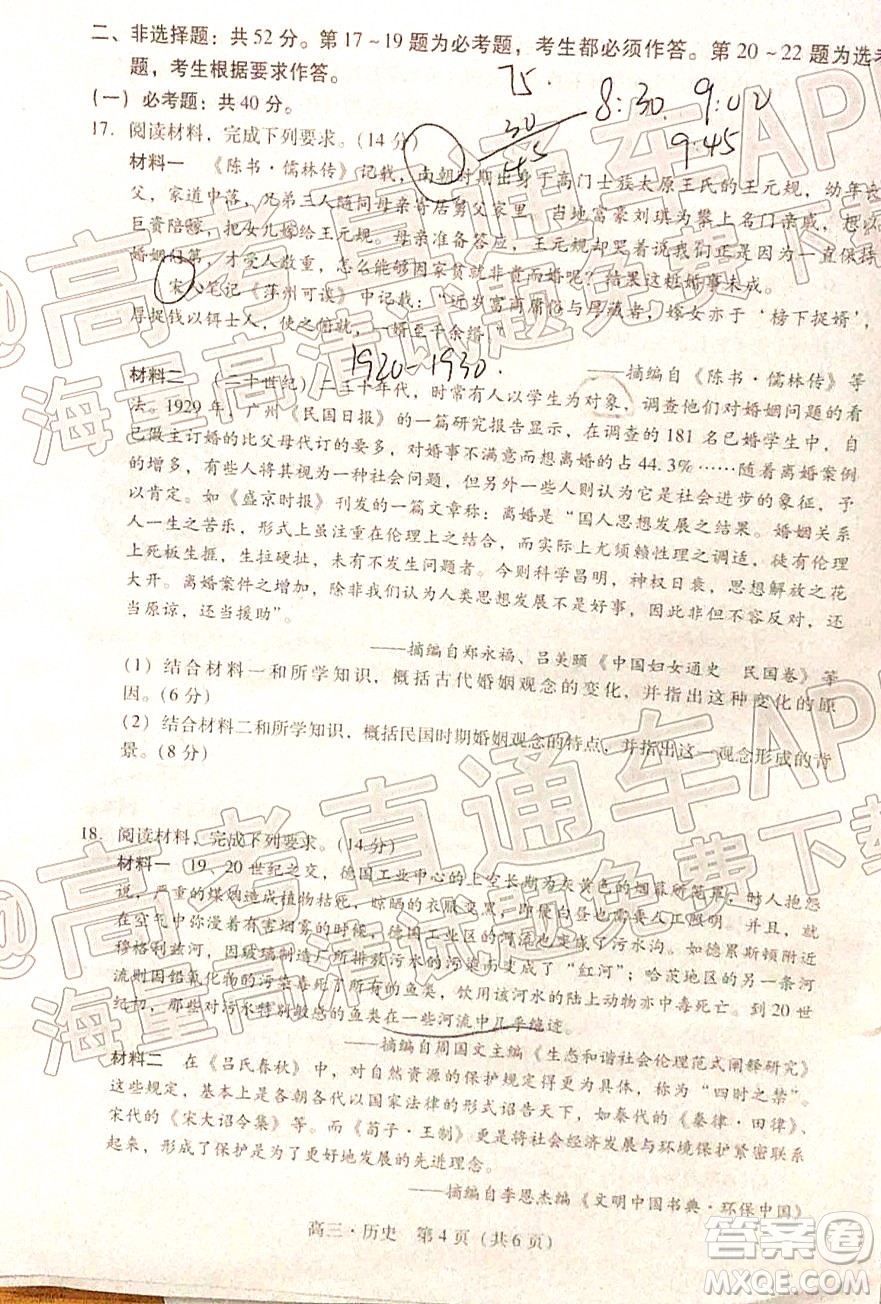 二、非选择题：共 52 分。第 17～19 题为必考题，考生都必须作答。第 20～22 题为选考
题，考生根据要求作答。
（一）必考题：共 40 分。
75.
30
45
8:30. 9:02
9:45
17. 阅读材料，完成下列要求。（14 分）
材料一 《陈书·儒林传》记载，南朝时期出身于高门士族太原王氏的王元规，幼年丧
父，家道中落，兄弟三人随同母亲寄居舅父家里。当地富豪刘瑱为攀上名门亲戚，以
巨资陪嫁，把女儿嫁给王元规。母亲准备答应，王元规却哭着说我们母子一直保持
婚姻门第，才受人敬重，怎么能因家贫就非贵而婚呢？结果这桩婚事未成。
宋人笔记《萍州可谈》中记载：“近岁富商庸俗与厚藏者，嫁女亦于‘榜下捉婿’，
厚捉钱以饵士人，使之俯就，一婿至千余缗。”
——摘编自《陈书·儒林传》等
1920-1930.
材料二 （二十世纪）二三十年代，时常有人以学生为对象，调查他们对婚姻问题的看
法。1929 年，广州《民国日报》的一篇研究报告显示，在调查的 181 名已婚学生中，自
己做主订婚的比父母代订的要多，对婚事不满意而想离婚的占 44.3%……随着离婚案例
的增多，有些人将其视为一种社会问题，但另外一些人却认为它是社会进步的象征，予
以肯定。如《盛京时报》刊发的一篇文章称：离婚是“国人思想发展之结果。婚姻关系
人一生之苦乐，形式上虽注重在伦理上之调协，而实际上尤须赖性理之调适，徒有伦理
上死板生捱，生拉硬扯，未有不发生痛苦者。今则科学昌明，神权日衰，思想解放之花
大开。离婚案件之增加，除非我们认为人类思想发展不是好事，因此非但不反对，还
当原谅，还当援助”。
——摘编自郑永福、吕美颐《中国妇女通史 民国卷》等
（1）结合材料一和所学知识，概括古代婚姻观念的变化，并指出这种变化的原
因。（6 分）
（2）结合材料二和所学知识，概括民国时期婚姻观念的特点，并指出这一观念形成的背
景。（8 分）
18. 阅读材料，完成下列要求。（14 分）
材料一 19、20 世纪之交，德国工业中心的上空长期为灰黄色的烟幕所笼罩，时人抱怨
说，严重的煤烟造成植物枯死，晾晒的衣服变黑，即便白昼也需要人工照明。并且，就
在空气中弥漫着有害烟雾的时候，德国工业区的河流也变成了污水沟。如德累斯顿附近
穆格利兹河，因玻璃制造厂所排放污水的污染而变成了“红河”；哈茨地区的另一条河
流则因铅氧化物的污染毒死了所有的鱼类，饮用该河水的陆上动物亦中毒死亡。到 20 世
纪初，那些对污水特别敏感的鱼类在一些河流中几乎绝迹。
——摘编自周国文主编《生态和谐社会伦理范式阐释研究》
材料二 在《吕氏春秋》中，对自然资源的保护规定得更为具体，称为“四时之禁”。
这些规定，更多的是各朝各代以国家法律的形式诏告天下，如秦代的《秦律·田律》、
宋代的《宋大诏令集》等。而《荀子·王制》更是将社会经济发展与环境保护紧密联系
起来，形成了保护是为了更好地发展的先进理念。
——摘编自李恩杰编《文明中国书典·环保中国》
高三·历史 第 4 页（共 6 页）
@高考直通车APP
海量高清试题免费下载
@高考直通车APP
海量高清试题免费下载
答案卷
MXQE.COM